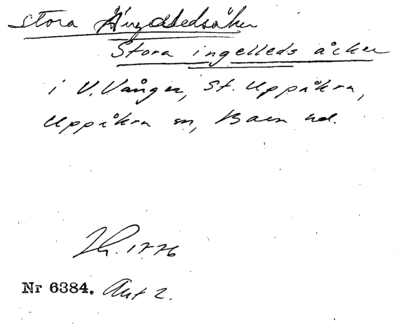 Stora
Stora ingelleds åcker
i V. Vången, St. Uppåkra,
Uppåkra sn, Bara hd.
1776
Nr 6384. Akt 2.